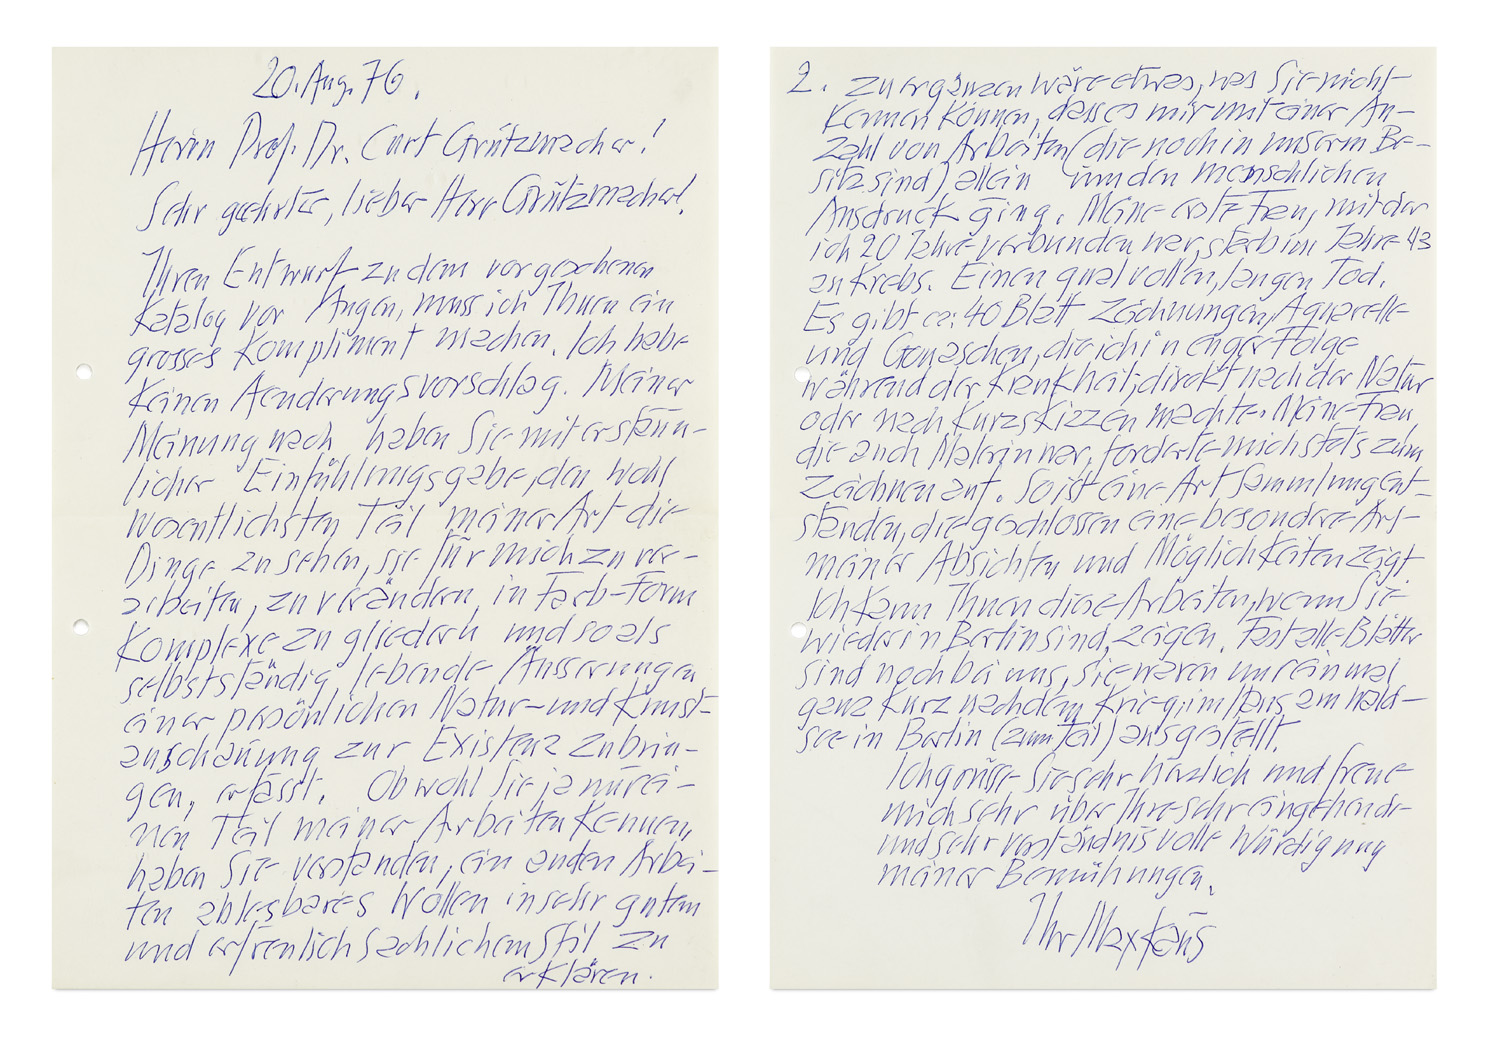 20. Aug. 76.
Herrn Prof. Dr. Curt Grützmacher!
Sehr geehrter, lieber Herr Grützmacher!
Ihren Entwurf zu dem vorgesehenen
Katalog vor Augen, muss ich Ihnen ein
grosses Kompliment machen. Ich habe
keinen Aenderungsvorschlag. Meiner
Meinung nach haben Sie mit erstaun-
licher Einfühlungsgabe, den wohl
wesentlichsten Teil meiner Art die
Dinge zu sehen, sie für mich zu ver-
arbeiten, zu verändern, in Farb-Form
Komplexe zu gliedern und so als
selbstständig lebende Äusserungen
einer persönlichen Natur- und Kunst-
anschauung zur Existenz zu brin-
gen, erfasst. Obwohl Sie ja nur ei-
nen Teil meiner Arbeiten kennen,
haben Sie verstanden, ein an den Arbei-
ten ablesbares Wollen in sehr gutem
und erfreulich sachlichem Stil zu
erklären.
2. Zu ergänzen wäre etwas, was Sie nicht
kennen können, dass es mir mit einer An-
zahl von Arbeiten (die noch in unserm Be-
sitz sind) allein um den menschlichen
Ausdruck ging. Meine erste Frau, mit der
ich 20 Jahre verbunden war, starb im Jahre 43
an Krebs. Einen qualvollen, langen Tod.
Es gibt ca: 40 Blatt Zeichnungen, Aquarelle
und Gouaschen, die ich in enger Folge
während der Krankheit, direkt nach der Natur
oder nach Kurzskizzen machte. Meine Frau,
die auch Malerin war, forderte mich stets zum
Zeichnen auf. So ist eine Art Sammlung ent-
standen, die geschlossen eine besondere Art
meiner Absichten und Möglichkeiten zeigt.
Ich kann Ihnen diese Arbeiten, wenn Sie
wieder in Berlin sind, zeigen. Fast alle Blätter
sind noch bei uns, sie waren nur einmal
ganz kurz nach dem Krieg im Haus am Wald-
see in Berlin (zum Teil) ausgestellt.
Ich grüsse Sie sehr herzlich und freue
mich sehr über Ihre sehr eingehende
und sehr verständnisvolle Würdigung
meiner Bemühungen.
Ihr Max Kaus